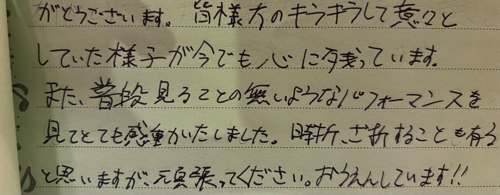 がとうございます。皆様方のキラキラして意々と
していた様子が今でも心に残っています。
また、普段見ることの無いようなパフォーマンスを
見てとても感動かいたしました。時折、ざ折することも有る
と思いますが、頑張ってください。おうえんしています!!